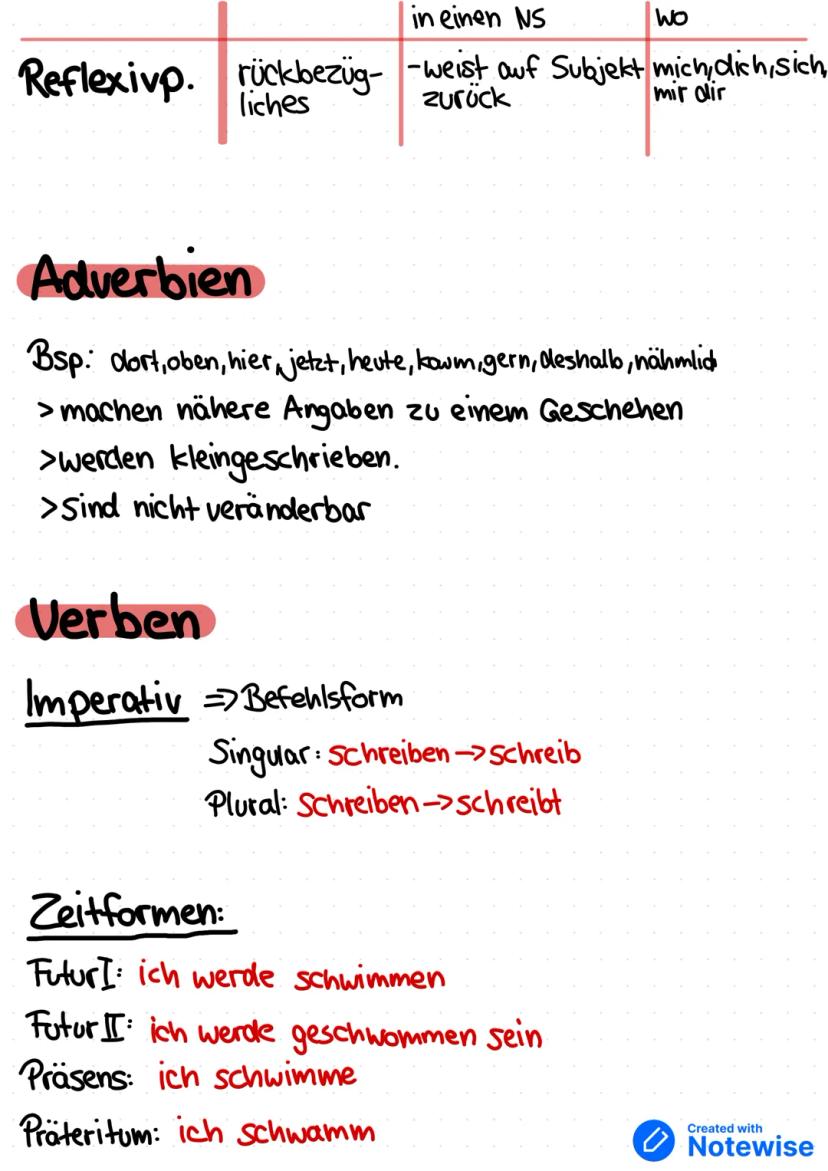 in einen NS
wo
Reflexivp.
rückbezüg-
liches
-weist auf Subjekt
zurück
mich, dich, sich,
mir dir
Adverbien
Bsp.: dort, oben, hier, jetzt, heute, kaum, gern, deshalb, nähmlich
>machen nähere Angaben zu einem Geschehen
>werden kleingeschrieben.
>sind nicht veränderbar
Verben
Imperativ => Befehlsform
Singular: schreiben -> schreib
Plural: schreiben -> schreibt
Zeitformen:
Futur I: ich werde schwimmen
Futur II: ich werde geschwommen sein
Präsens: ich schwimme
Präteritum: ich schwamm
Created with
Notewise